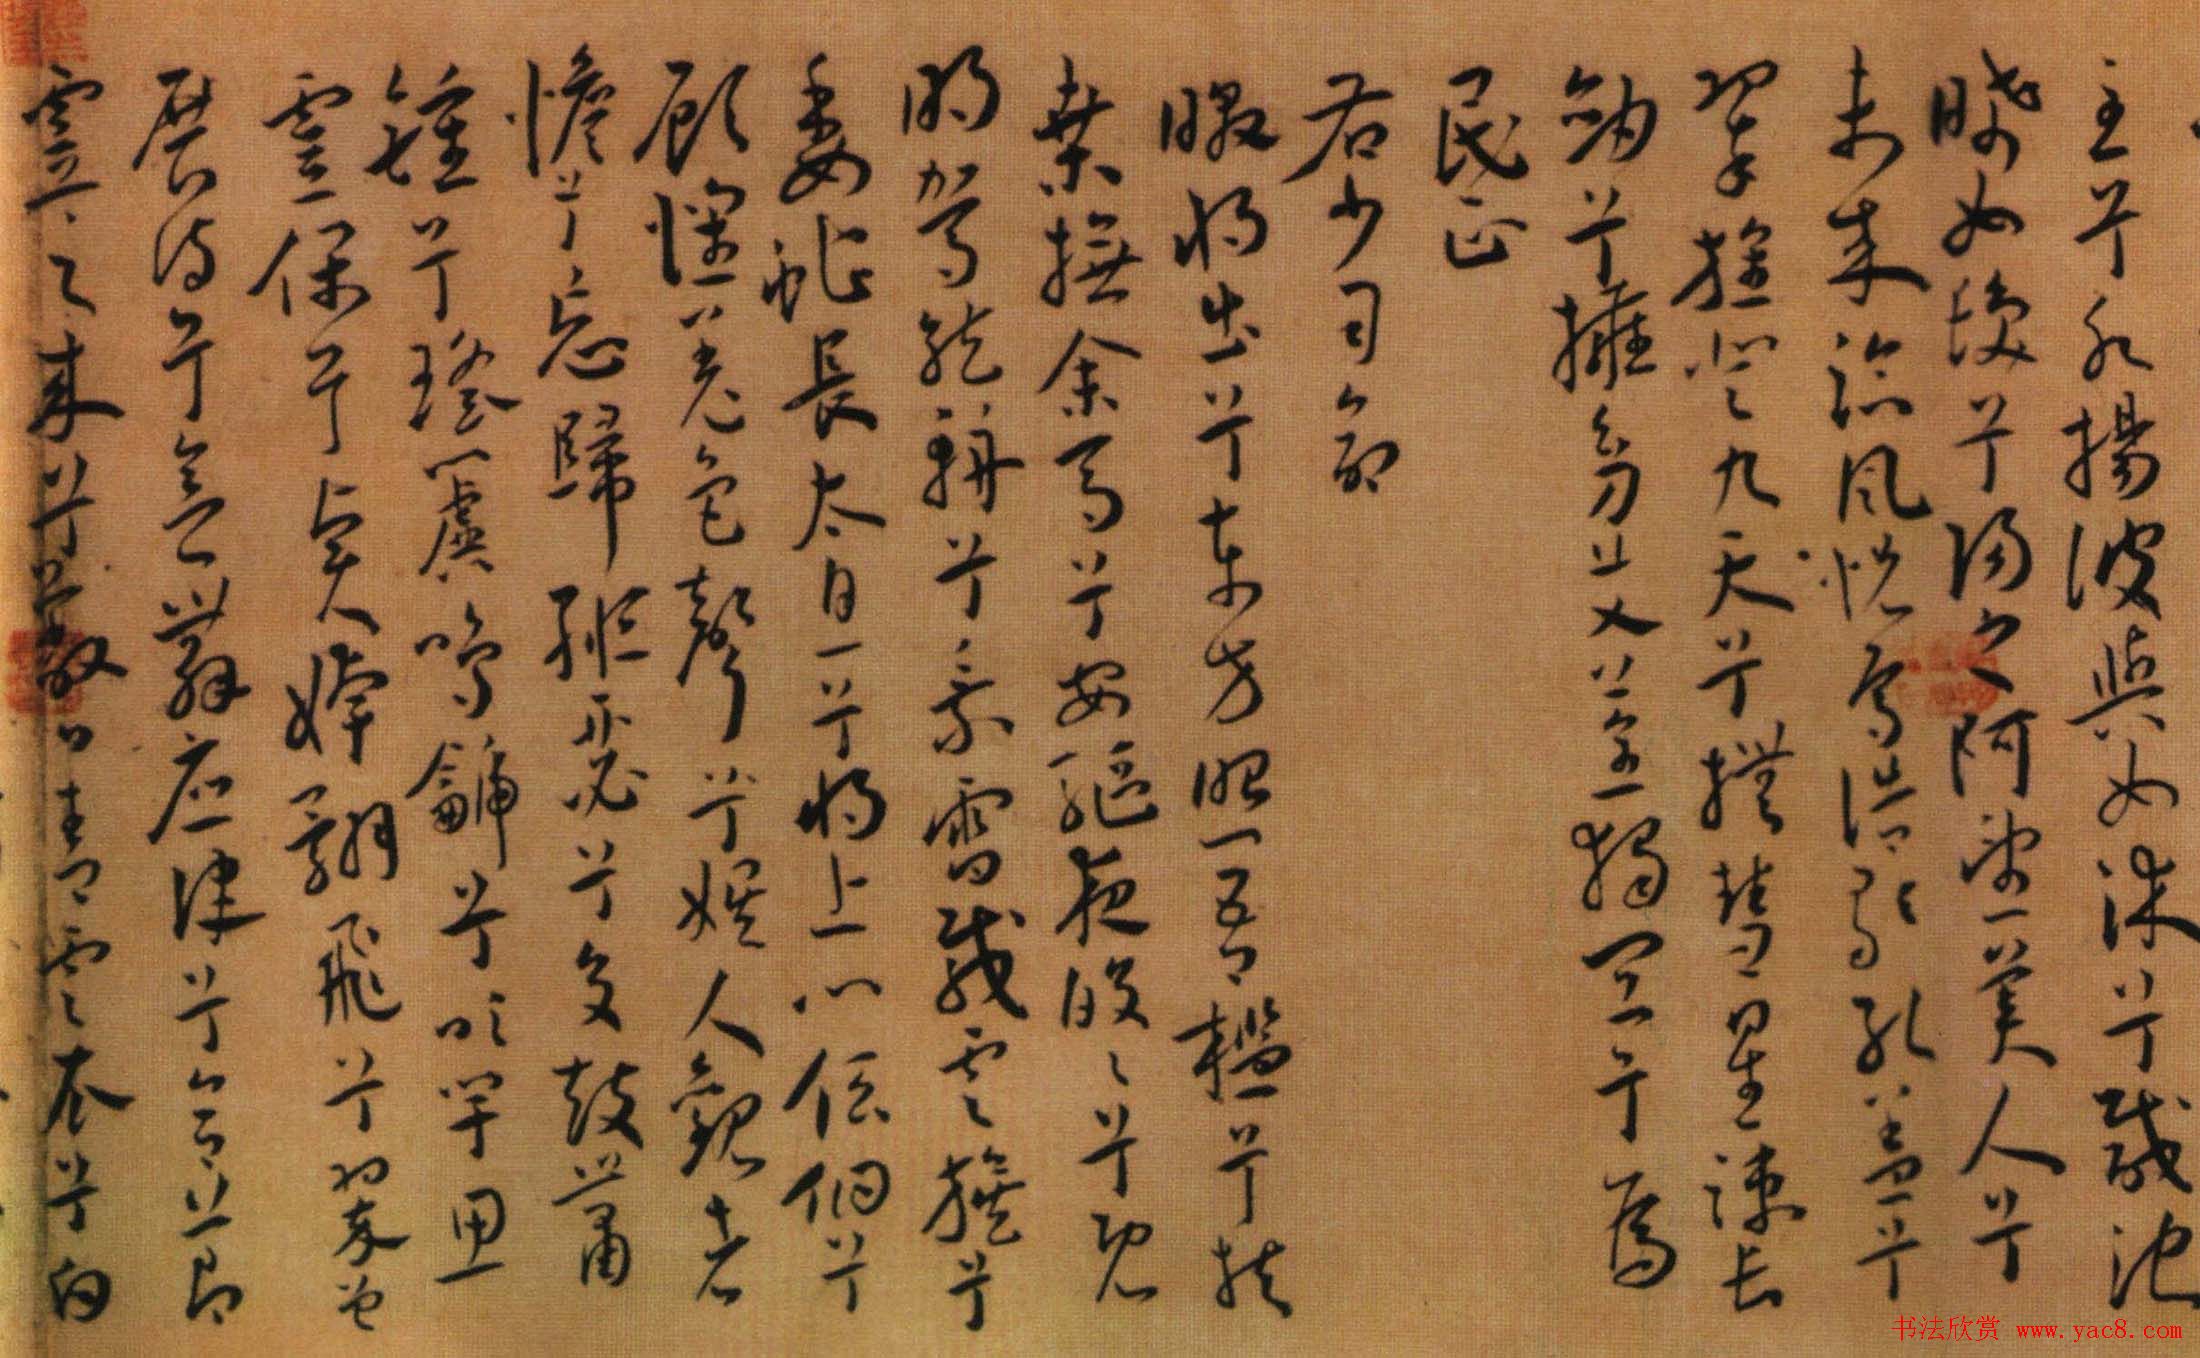 至兮水揚波與女沐兮咸池
晞女髮兮陽之阿望美人兮
未來臨風怳兮浩歌孔蓋兮
翠旍登九天兮撫彗星竦長
劍兮擁幼艾荃獨宜兮為
民正
右少司命
暾將出兮東方照吾檻兮扶
桑撫余馬兮安驅夜皎々兮既
明駕龍輈兮乘雷載雲旗兮
委蛇長太息兮將上心低佪兮
顧懷羌色聲兮娛人觀者
憺兮忘歸緪瑟兮交鼓簫
鍾兮瑤虡鳴䶵兮吹竽思
靈保兮賢姱翾飛兮翠曾
展詩兮會舞應律兮合節
靈之來兮蔽日青雲衣兮白
书法欣赏 www.yac8.com